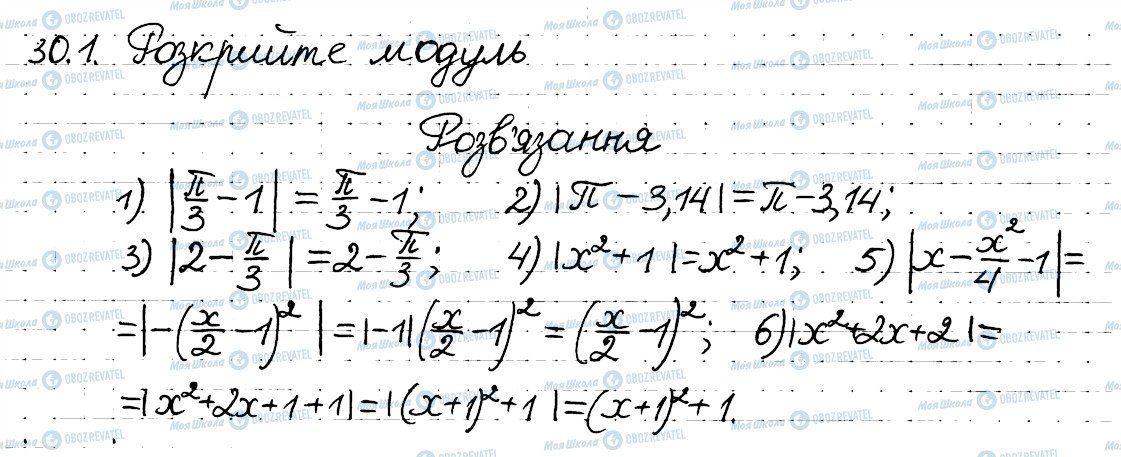 30.1. Розкрийте модуль
Розв'язання
1) |π/3 - 1| = π/3 - 1; 2) |π - 3,14| = π - 3,14;
3) |2 - π/3| = 2 - π/3; 4) |x² + 1| = x² + 1; 5) |x - x²/4 - 1| =
= |-(x/2 - 1)²| = |-1|(x/2 - 1)² = (x/2 - 1)²; 6) |x² + 2x + 2| =
= |x² + 2x + 1 + 1| = |(x + 1)² + 1| = (x + 1)² + 1.
Моя Школа OBOZREVATEL